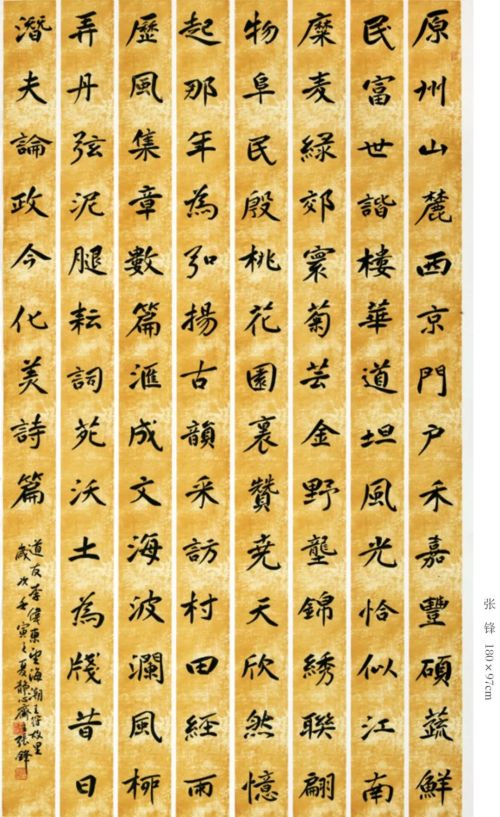 原州山麓西京門户禾嘉豐碩蔬鮮
民富世諧樓華道坦風光恰似江南
糜麦緑郊寰菊芸金野壟錦綉聯翩
物阜民殷桃花園裏贊堯天欣然憶
起那年為弘揚古韻采訪村田經雨
歷風集章數篇滙成文海波瀾風柳
弄丹弦泥腿耘詞苑沃土為牋昔日
潛夫論政今化美詩篇
道友李偉東望海潮王符故里
歲次壬寅之夏静心齋張鋒
张 锋 180×97cm